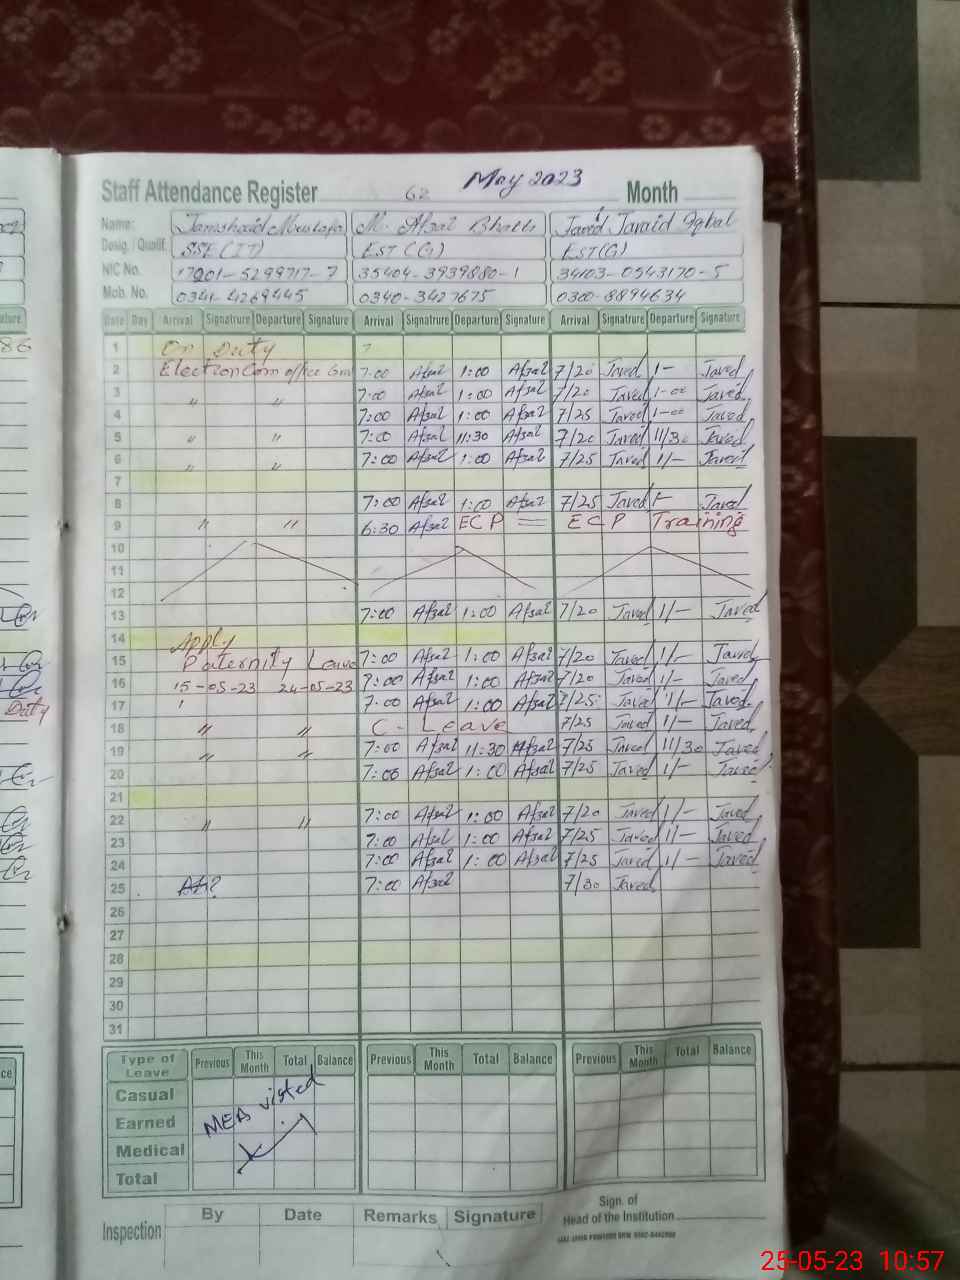 Staff Attendance Register 62 May 2023 Month
Name: Jamshaid Mustafa M. Afzal Bhatti Javed Iqbal
Desig. / Qualif. SSE(IT) EST(G) EST(G)
NIC No. 35404-3939880-1 34103-0543170-5
Mob. No. 0341-4269445 0340-3427675 0300-8894634
Date Day Arrival Signatrure Departure Signature Arrival Signatrure Departure Signature Arrival Signatrure Departure Signature
1 On Duty
2 Election Com office 7:00 Afzal 1:00 Afzal 7/20 Javed 1- Javed
3 " " 7:00 Afzal 1:00 Afzal 7/20 Javed 1-00 Javed
4 7:00 Afzal 1:00 Afzal 7/25 Javed 1-00 Javed
5 " " 7:00 Afzal 11:30 Afzal 7/20 Javed 11/30 Javed
6 " " 7:00 Afzal 1:00 Afzal 7/25 Javed 1/- Javed
7
8 7:00 Afzal 1:00 Afzal 7/25 Javed 1- Javed
9 " " 6:30 Afzal ECP ECP Training
10
11
12
13 7:00 Afzal 1:00 Afzal 7/20 Javed 1/- Javed
14 Apply
15 Paternity Leave 7:00 Afzal 1:00 Afzal 7/20 Javed 1/- Javed
16 15-05-23 24-05-23 7:00 Afzal 1:00 Afzal 7/20 Javed 1/- Javed
17 7:00 Afzal 1:00 Afzal 7/25 Javed 1/- Javed
18 " " C- Leave 7/25 Javed 1/- Javed
19 " " 7:00 Afzal 11:30 Afzal 7/25 Javed 11/30 Javed
20 7:00 Afzal 1:00 Afzal 7/25 Javed 1/- Javed
21
22 " " 7:00 Afzal 1:00 Afzal 7/20 Javed 1/- Javed
23 7:00 Afzal 1:00 Afzal 7/25 Javed 1/- Javed
24 7:00 Afzal 1:00 Afzal 7/25 Javed 1/- Javed
25 7:00 Afzal 7/30 Javed
26
27
28
29
30
31
Type of Leave Previous This Month Total Balance Previous This Month Total Balance Previous This Month Total Balance
Casual
Earned
Medical
Total
MEA visted
Inspection By Date Remarks Signature
Sign. of
Head of the Institution
25-05-23 10:57